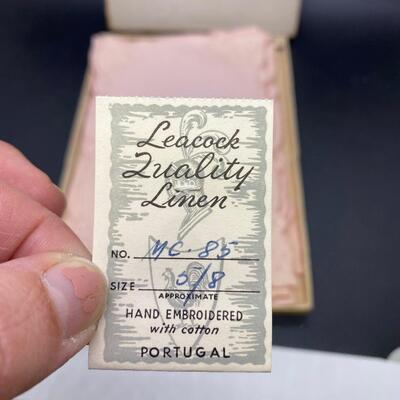 Leacock
Quality
Linen
NO. MC-85
SIZE 5/8
APPROXIMATE
HAND EMBROIDERED
with cotton
PORTUGAL